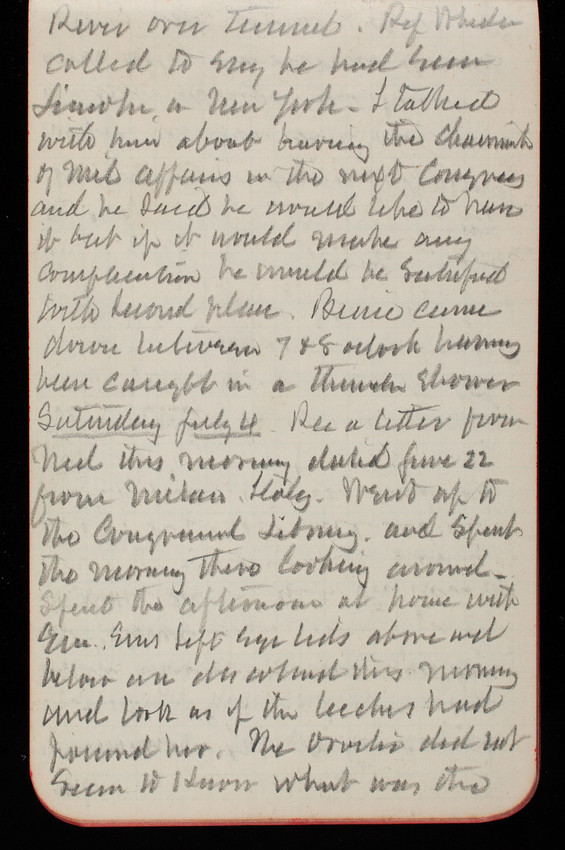 River over tunnel. Rep Wheeler
called to say he had seen
Lincoln in New York - I talked
with him about having the chairmanship
of Mil Affairs in the next Congress
and he said he would like to have
it but if it would make any
complication he would be satisfied
with second place. Bessie came
down between 7 & 8 oclock having
been caught in a thunder shower
Saturday July 4 Rec a letter from
Ned this morning dated June 22
from Milan Italy. Went up to
the Congressional Library. and spent
the morning there looking around -
Spent the afternoon at home with
Em. Ems left eye lids above and
below are discolored this morning
and look as if the leeches had
poisoned her. The Doctor did not
seem to know what was the